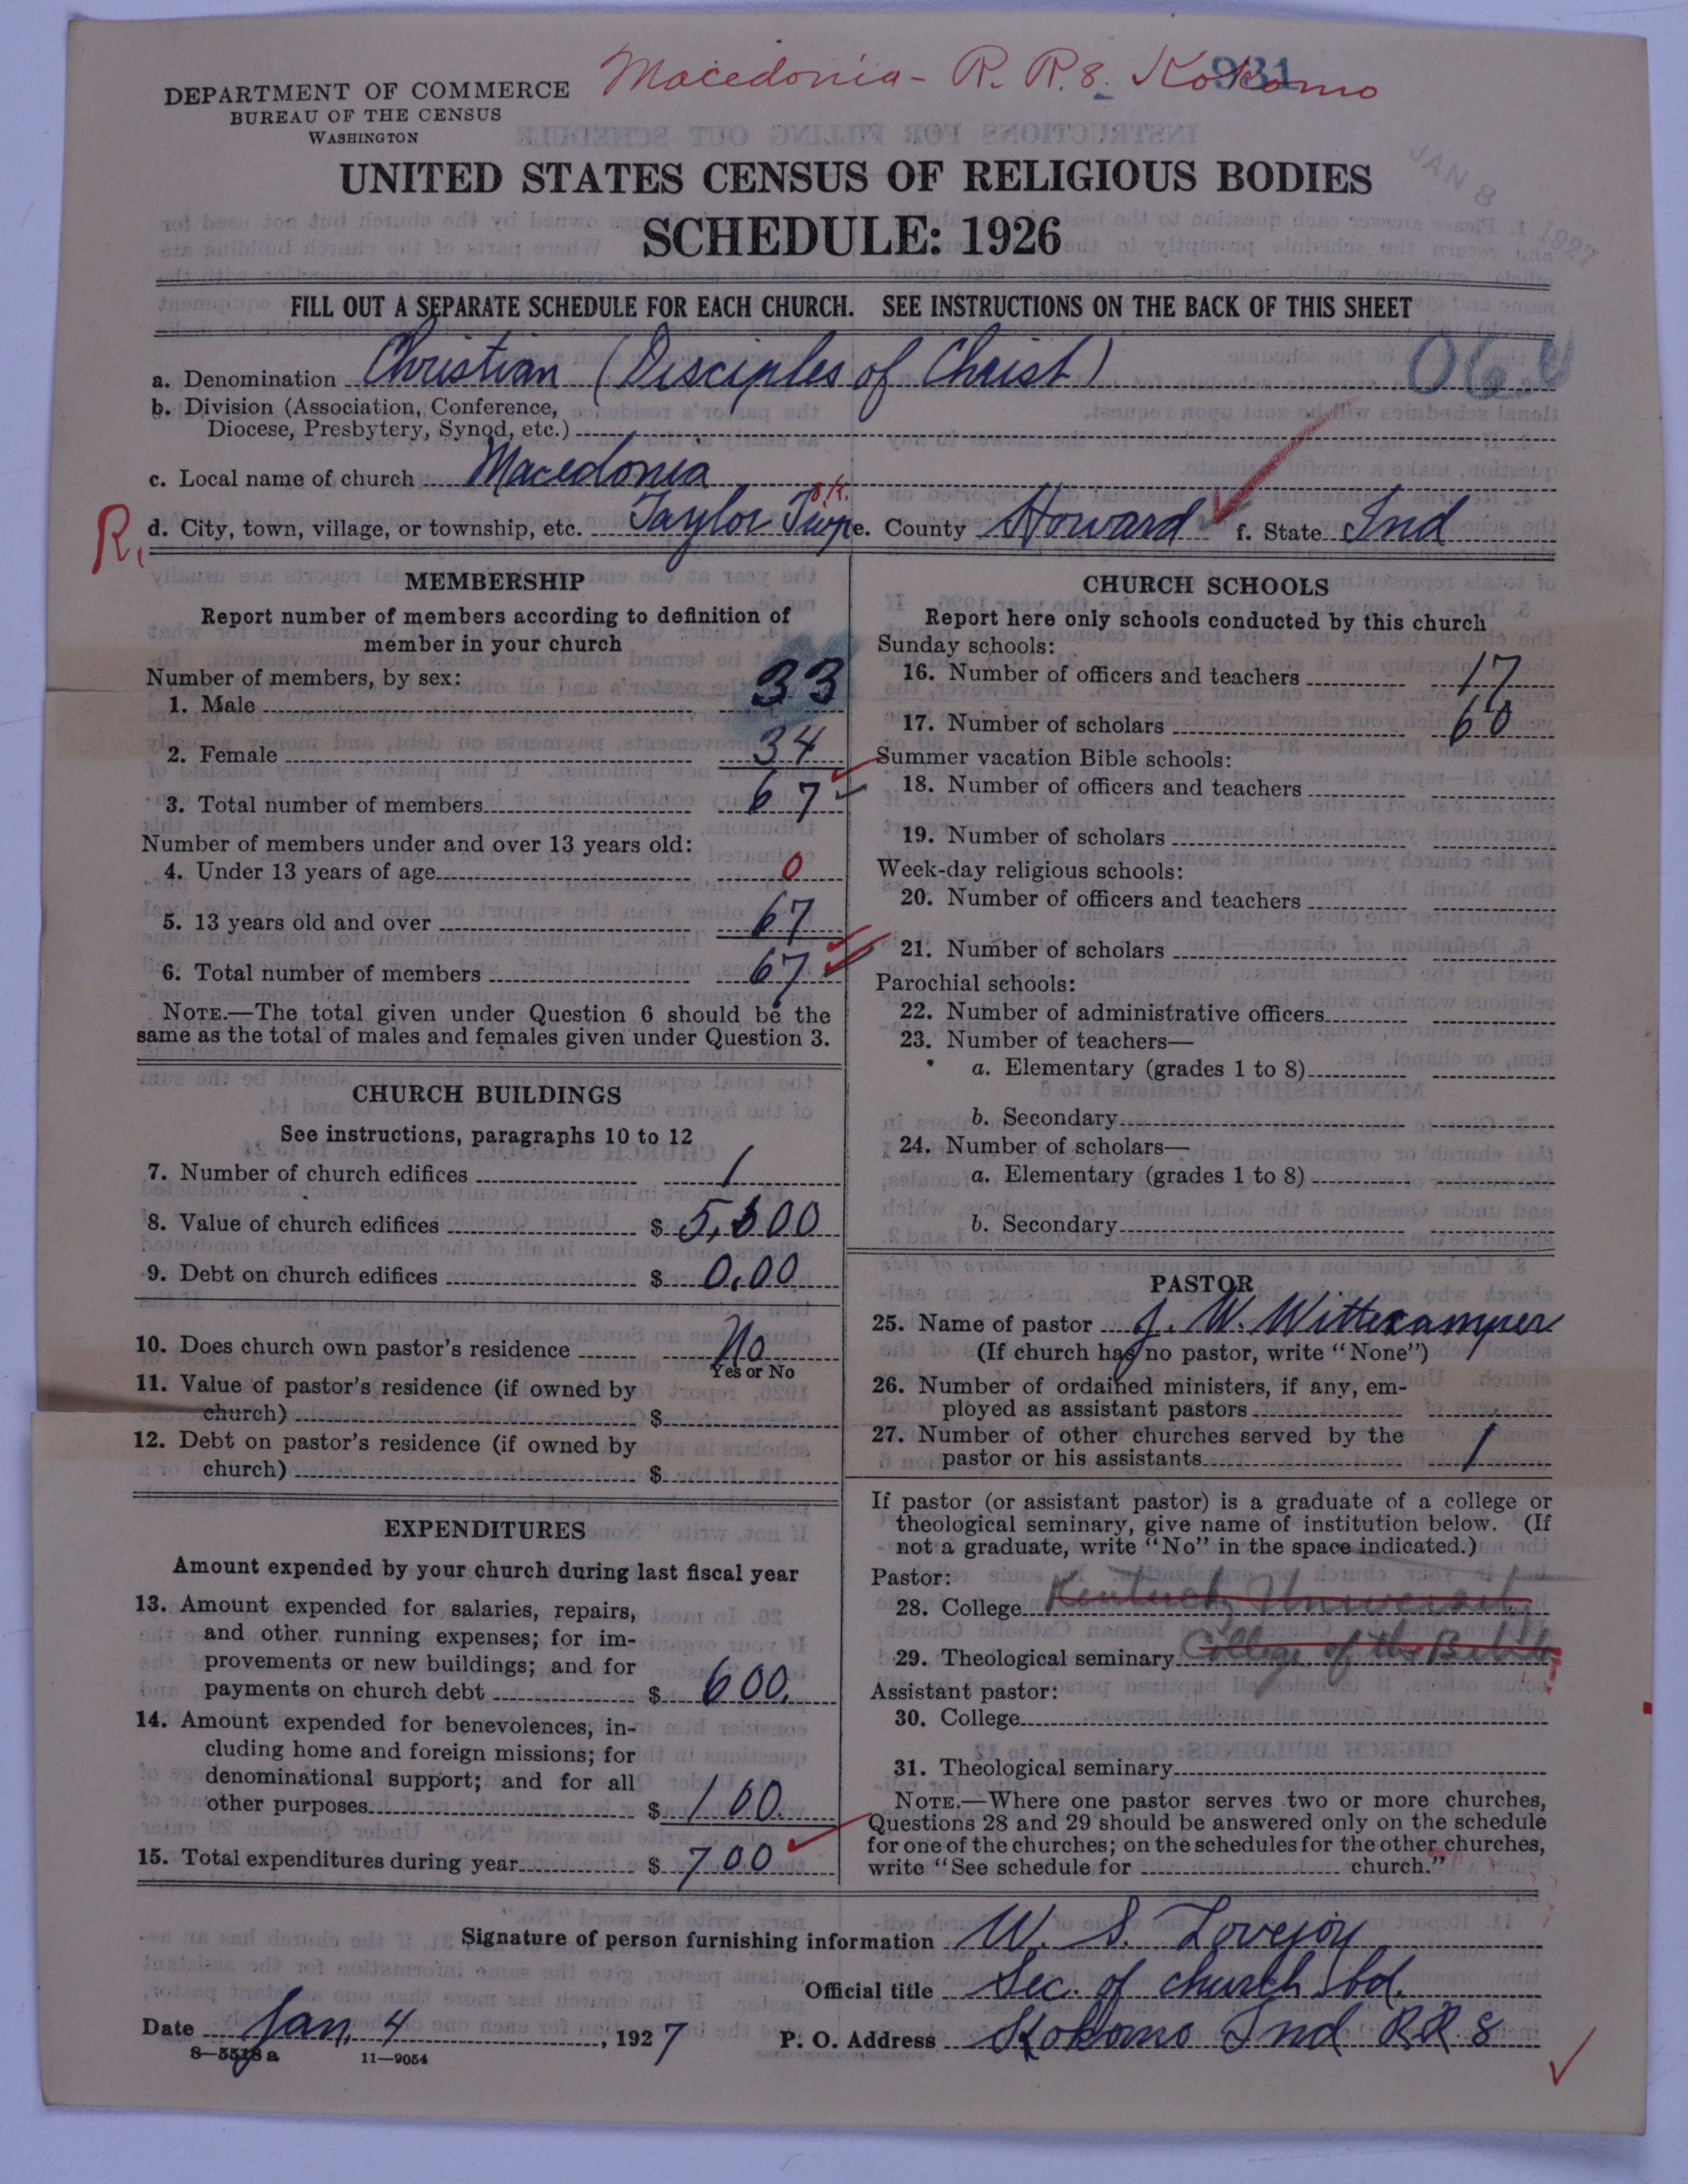 Macedonia - R. R. 8. Kokomo
931
DEPARTMENT OF COMMERCE
BUREAU OF THE CENSUS
WASHINGTON
UNITED STATES CENSUS OF RELIGIOUS BODIES
SCHEDULE: 1926
JAN 8 1927
FILL OUT A SEPARATE SCHEDULE FOR EACH CHURCH. SEE INSTRUCTIONS ON THE BACK OF THIS SHEET
a. Denomination Christian (Disciples of Christ)
b. Division (Association, Conference,
Diocese, Presbytery, Synod, etc.)
c. Local name of church Macedonia
R. d. City, town, village, or township, etc. Taylor Twp e. County Howard f. State Ind
MEMBERSHIP
Report number of members according to definition of
member in your church
Number of members, by sex:
1. Male 33
2. Female 34
3. Total number of members 67
Number of members under and over 13 years old:
4. Under 13 years of age 0
5. 13 years old and over 67
6. Total number of members 67
NOTE.—The total given under Question 6 should be the
same as the total of males and females given under Question 3.
CHURCH BUILDINGS
See instructions, paragraphs 10 to 12
7. Number of church edifices 1
8. Value of church edifices $
9. Debt on church edifices $ 0.00
10. Does church own pastor's residence No
Yes or No
11. Value of pastor's residence (if owned by
church) $
12. Debt on pastor's residence (if owned by
church) $
EXPENDITURES
Amount expended by your church during last fiscal year
13. Amount expended for salaries, repairs,
and other running expenses; for im-
provements or new buildings; and for
payments on church debt $ 600.
14. Amount expended for benevolences, in-
cluding home and foreign missions; for
denominational support; and for all
other purposes $ 100.
15. Total expenditures during year $ 700
CHURCH SCHOOLS
Report here only schools conducted by this church
Sunday schools:
16. Number of officers and teachers 17
17. Number of scholars 60
Summer vacation Bible schools:
18. Number of officers and teachers
19. Number of scholars
Week-day religious schools:
20. Number of officers and teachers
21. Number of scholars
Parochial schools:
22. Number of administrative officers
23. Number of teachers—
a. Elementary (grades 1 to 8)
b. Secondary
24. Number of scholars—
a. Elementary (grades 1 to 8)
b. Secondary
PASTOR
25. Name of pastor J. W. Wittkamper
(If church has no pastor, write "None")
26. Number of ordained ministers, if any, em-
ployed as assistant pastors
27. Number of other churches served by the
pastor or his assistants 1
If pastor (or assistant pastor) is a graduate of a college or
theological seminary, give name of institution below. (If
not a graduate, write "No" in the space indicated.)
Pastor:
28. College Kentucky University
29. Theological seminary College of the Bible
Assistant pastor:
30. College
31. Theological seminary
NOTE.—Where one pastor serves two or more churches,
Questions 28 and 29 should be answered only on the schedule
for one of the churches; on the schedules for the other churches,
write "See schedule for church."
Signature of person furnishing information W. S. Lovejoy
Official title Sec. of church bd.
Date Jan. 4, 1927 P. O. Address Kokomo Ind R.R. 8
8—5518 a 11—9054